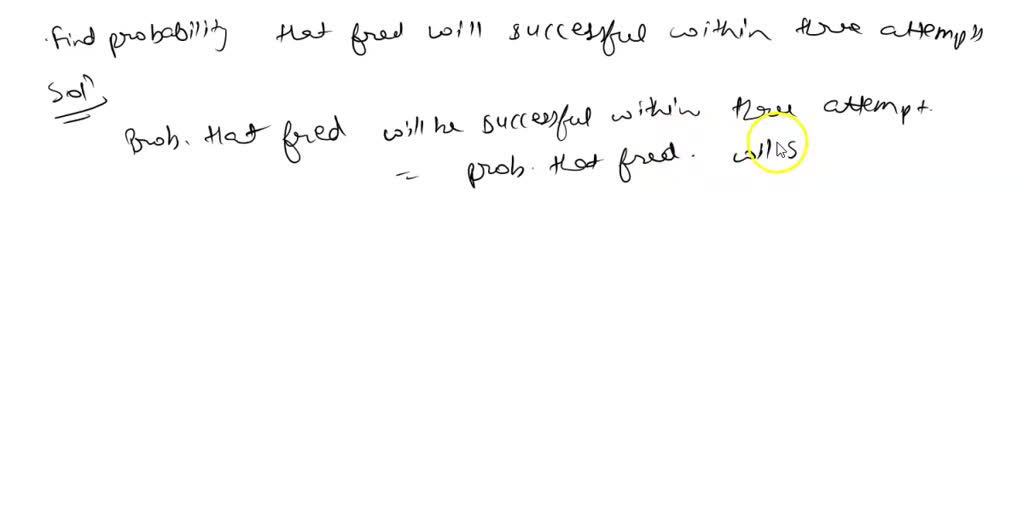 .Find probability that fred will successful within three attempts
Soln
Prob. that fred will be successful within three attempt.
= prob. that fred. will s